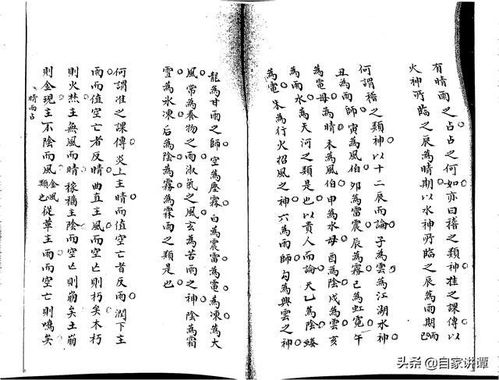 有晴雨之占占之何如亦曰稽之類神推之課傳以
火神所臨之辰為晴期以水神所臨之辰為雨期已
何謂稽之類神以十二辰而論子為雲為江湖水神
丑為雨師寅為風伯卯為雷震辰為霧已為虹霓午
為電母為晴未為風伯申為水母酉為陰戌為雲亥
為雨水為天河之類是也以貴人而論天乙為陰螣
為電朱為行火招風之神六為雨師勾為興雲之神
龍為甘雨之師空為塵霧白為震雷為電為凍為大
風常為養物之雨淑氣之風玄為苦雨之神陰為霜
雪為冰凍后為陰為霧為霖雨之類是也
何謂准之課傳炎上主晴而值空亡者反雨潤下主
雨而值空亡者反晴曲直主風而空亡則朽矣木朽
則火炎主無風而晴稼穡主陰而空亡則崩矣土崩
則金現主不陰而風金風類也從革主雨而空亡則鳴矣
晴雨占
头条 @自家讲谭